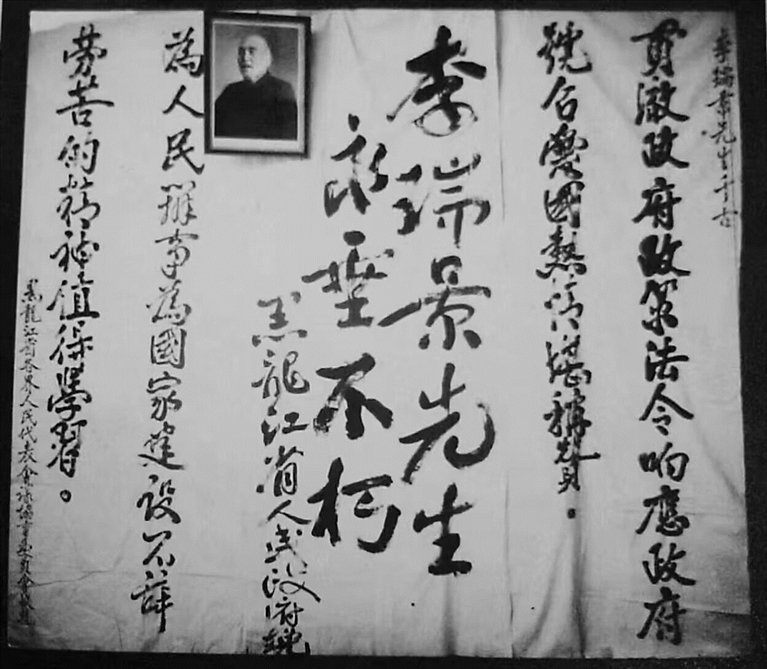 李瑞景先生千古
貫澈政府政策法令响應政府
號召愛國熱情堪稱贊。
李瑞景先生
永垂不朽
黑龍江省人民政府輓
為人民辦事為國家建設不辭
勞苦的精神值得學習。
黑龍江省各界人民代表會議協商委員會敬